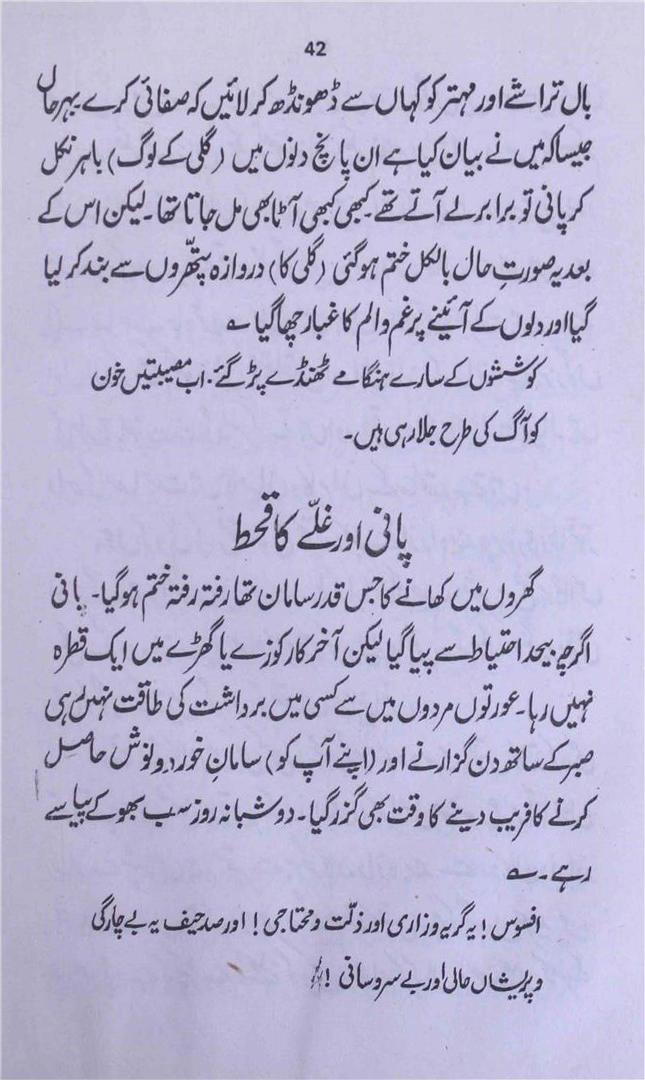 42
بال تراشے اور مہتر کو کہاں سے ڈھونڈھ کر لائیں کہ صفائی کرے بہر حال
جیسا کہ میں نے بیان کیا ہے ان پانچ دنوں میں (گلی کے لوگ) باہر نکل
کر پانی تو برابر لے آتے تھے۔ کبھی کبھی آٹا بھی مل جاتا تھا۔ لیکن اس کے
بعد یہ صورتِ حال بالکل ختم ہو گئی (گلی کا) دروازہ پتھّروں سے بند کر لیا
گیا اور دلوں کے آئینے پر غم و الم کا غبار چھا گیا ؎
کوششوں کے سارے ہنگامے ٹھنڈے پڑ گئے۔ اب مصیبتیں خون
کو آگ کی طرح جلا رہی ہیں۔
پانی اور غلّے کا قحط
گھروں میں کھانے کا جس قدر سامان تھا رفتہ رفتہ ختم ہو گیا۔ پانی
اگرچہ بیحد احتیاط سے پیا گیا لیکن آخر کار کوزے یا گھڑے میں ایک قطرہ
نہیں رہا۔ عورتوں مردوں میں سے کسی میں برداشت کی طاقت نہیں رہی
صبر کے ساتھ دن گزارنے اور (اپنے آپ کو) سامانِ خورد و نوش حاصل
کرنے کا فریب دینے کا وقت بھی گزر گیا۔ دو شبانہ روز سب بھوکے پیاسے
رہے۔ ؎
افسوس! یہ گریہ و زاری اور ذلّت و محتاجی! اور صد حیف یہ بے چارگی
و پریشاں حالی اور بے سروسامانی!